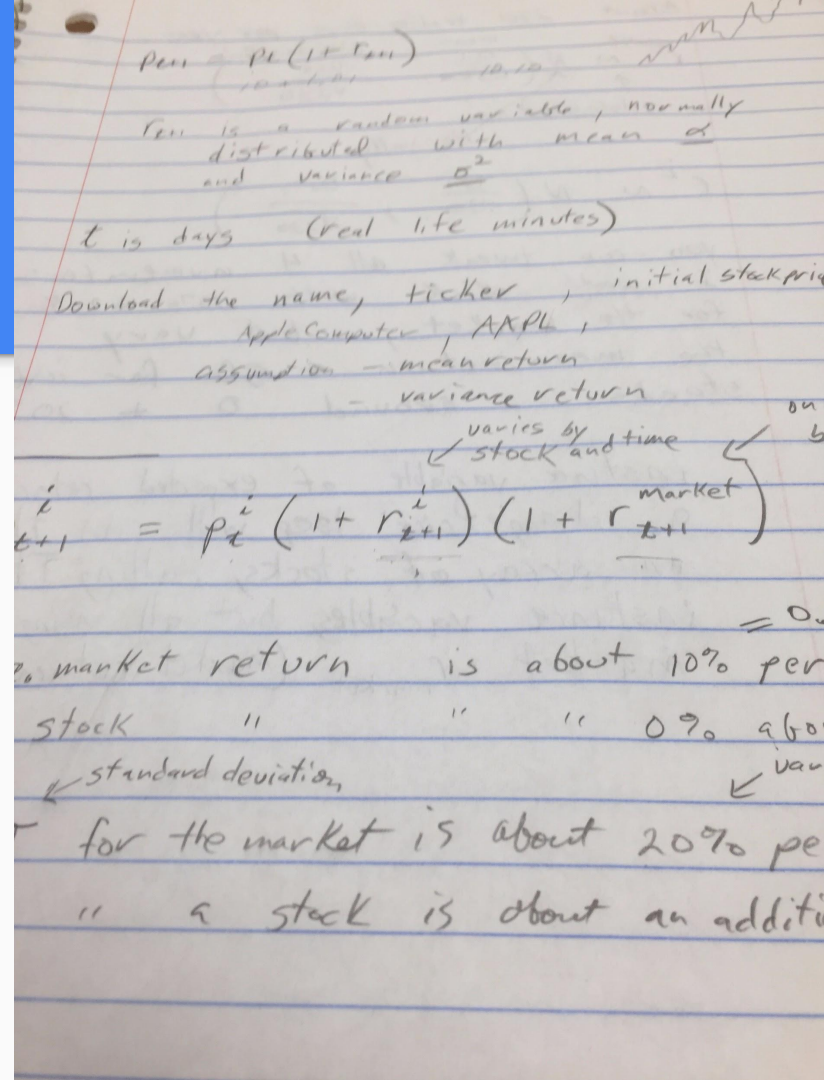 p_{t+1} = p_t (1 + r_{t+1})
r_{t+1} is a random variable, normally
distributed with mean α
and variance σ²
t is days (real life minutes)
Download the name, ticker, initial stock pric
Apple Computer, AAPL,
assumption - mean return
variance return
on
varies by
b
stock and time
i_{t+1} = p_t^i (1 + r_{t+1}^i) (1 + r_{t+1}^{market})
= 0.
market return is about 10% per
stock " " " 0% abo
standard deviation
var
for the market is about 20% pe
" a stock is about an additi